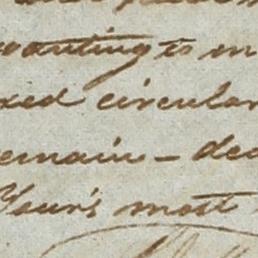 wanting is m
xed circular
emain - dea
Your's most